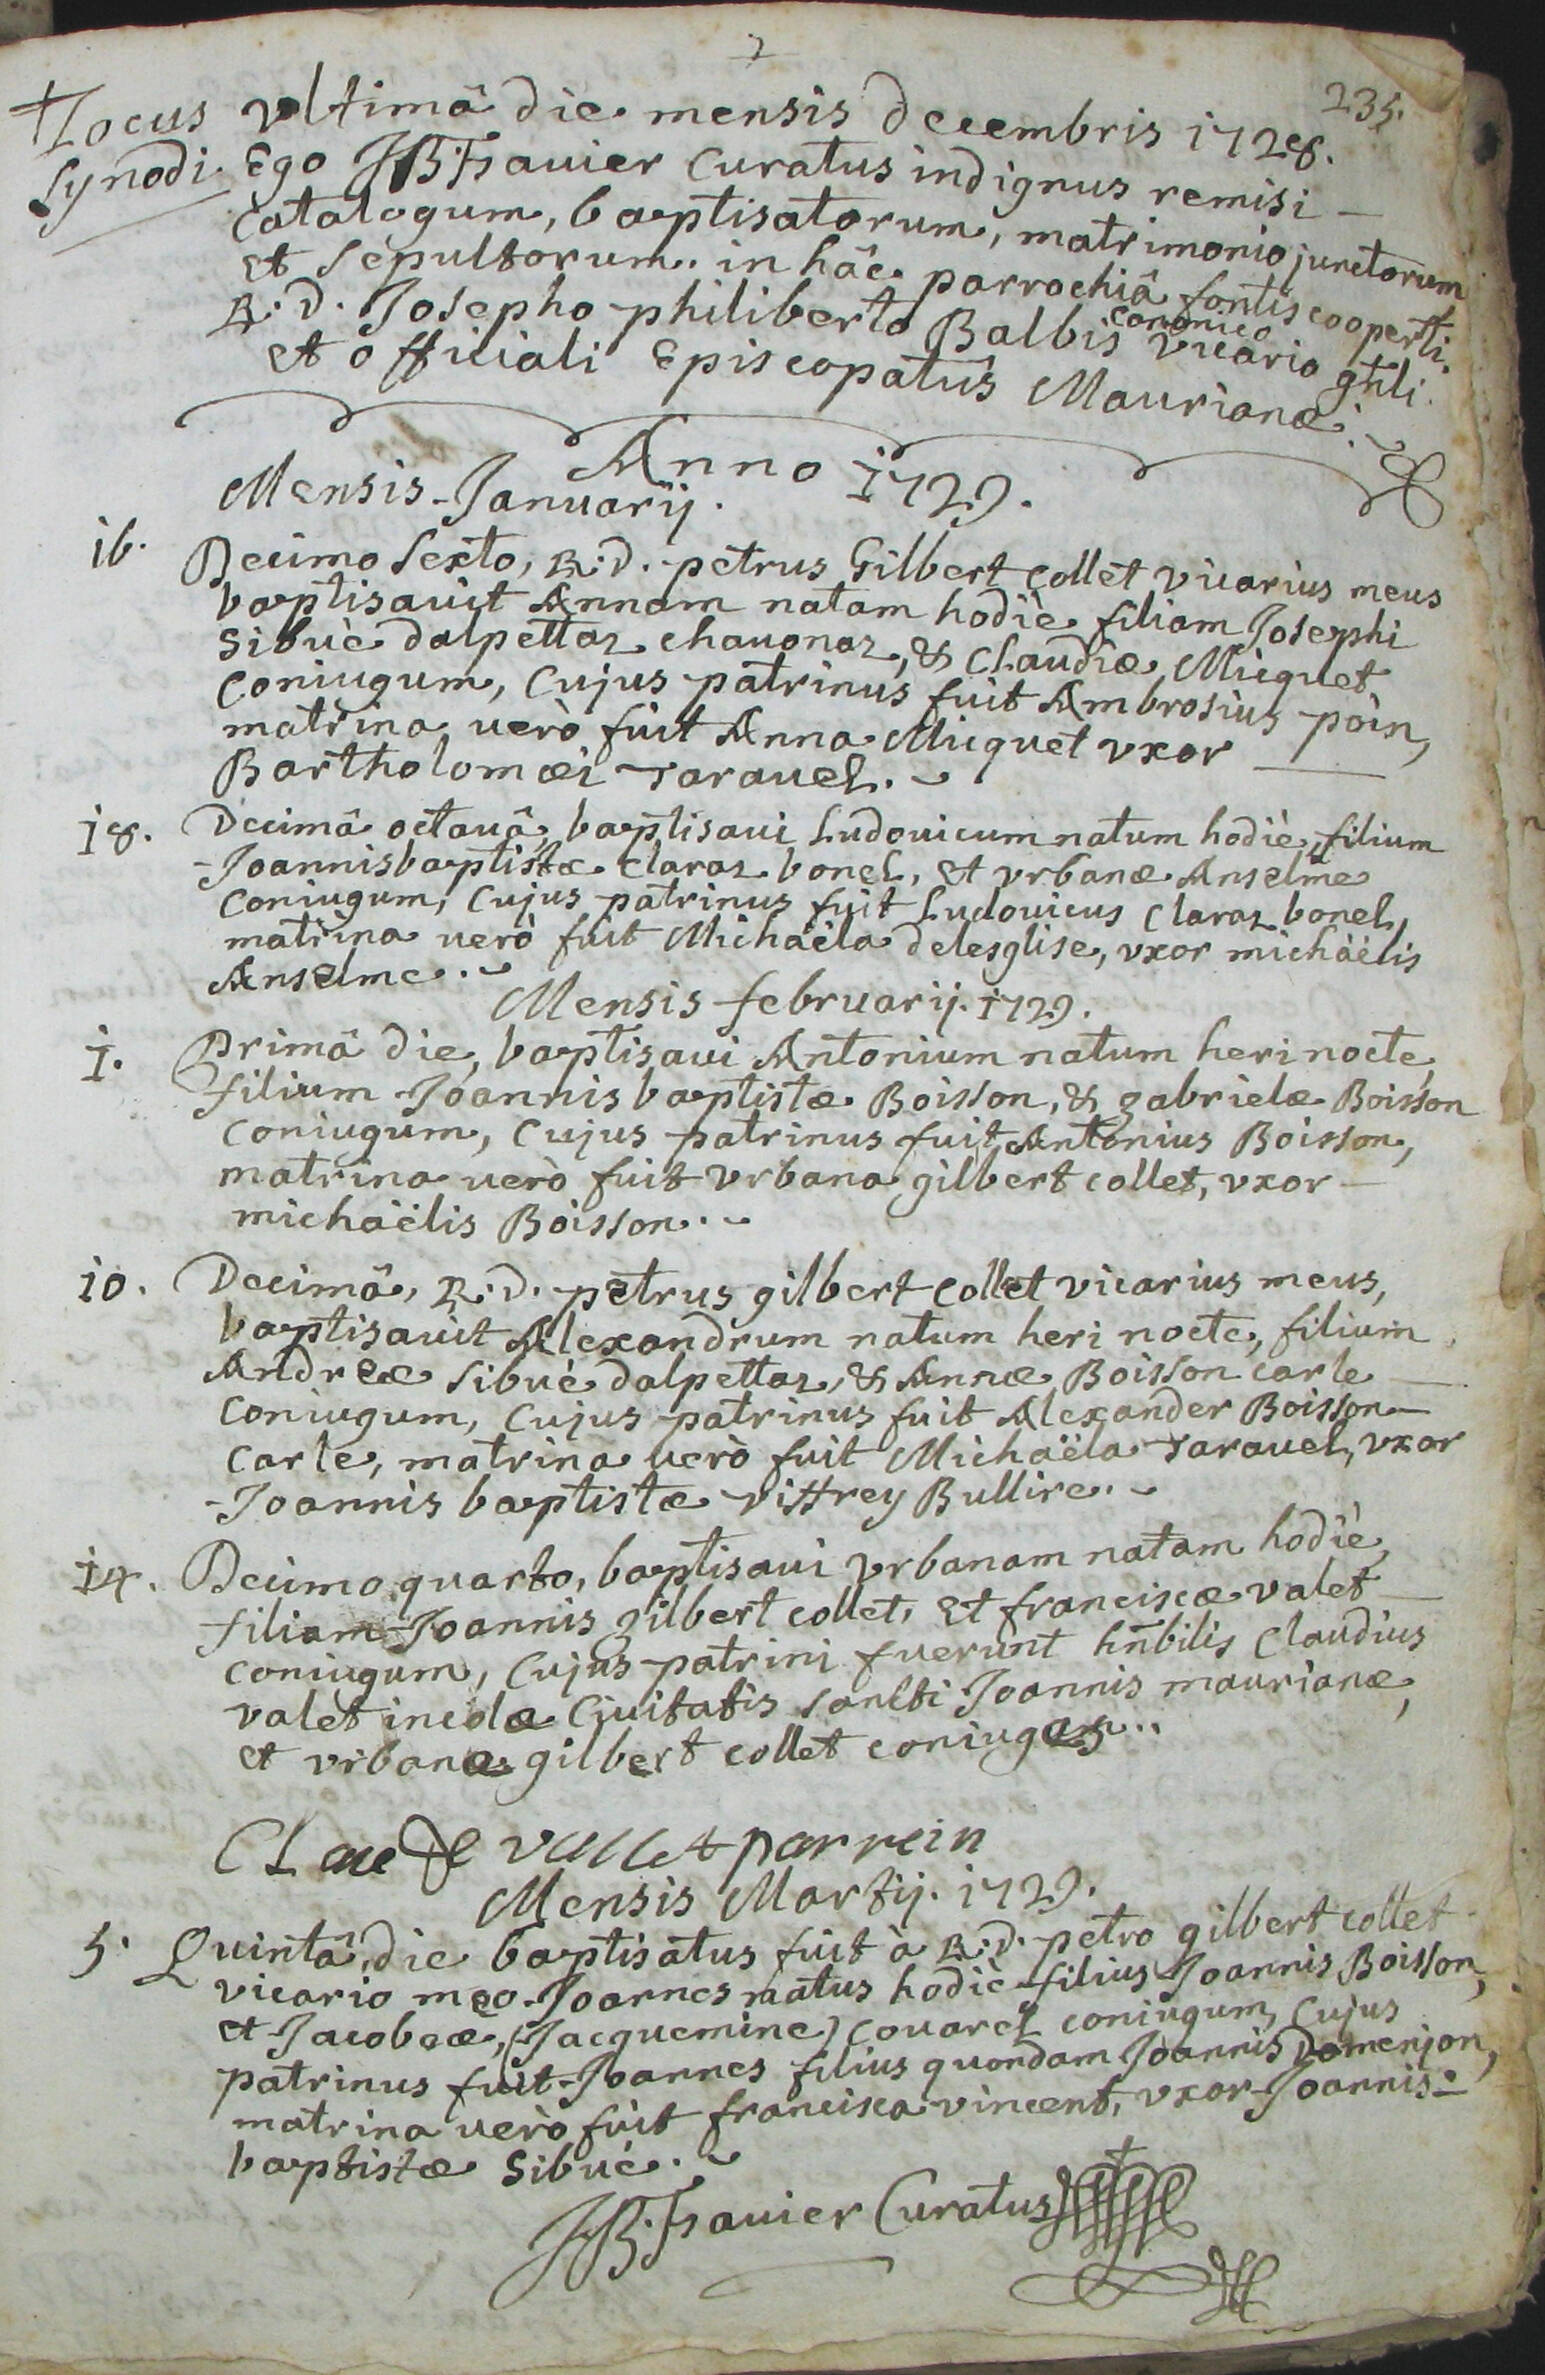 235.
†Locus
Synodi.
Vltimâ die mensis decembris 1728.
Ego JB: Frauier Curatus indignus remisi
Catalogum, baptisatorum, matrimonio junctorum
et Sepultorum. in hâc parrochiâ fontiscooperti.
R: d. Josepho philiberto Balbis canonico vicario gnli.
et officiali Episcopatûs Maurianæ.
Anno 1729.
Mensis Januarij.
16. Decimo Sexto, R: d. petrus Gilbert collet vicarius meus
baptisauit Annam natam hodiè filiam Josephi
Sibué dalpettaz chauonaz, & Claudiæ Micquet
Coniugum, Cujus patrinus fuit Ambrosius poin,
matrina verò fuit Anna Micquet vxor
Bartholomæi Tarauel.
18. Decimâ octauâ, baptisaui Ludouicum natum hodiè, filium
Joannisbaptistæ Claraz bonel, et vrbanæ Anselme
Coniugum, Cujus patrinus fuit Ludouicus Claraz bonel,
matrina verò fuit Michaëla delesglise, vxor michäëlis
Anselme.
Mensis februarij. 1729.
1. Primâ die, baptisaui Antonium natum heri nocte,
filium Joannis baptistæ Boisson, & gabrielæ Boisson
Coniugum, Cujus patrinus fuit Antonius Boisson,
matrina verò fuit vrbana gilbert collet, vxor
michäëlis Boisson.
10. Decimâ, R: d. petrus gilbert collet vicarius meus,
baptisauit Alexandrum natum heri nocte, filium
Andreæ Sibué dalpettaz, & Annæ Boisson carle
Coniugum, Cujus patrinus fuit Alexander Boisson
Carle, matrina verò fuit Michaëla Tarauel, vxor
Joannis baptistæ vittrey Bullire.
14. Decimo quarto, baptisaui vrbanam natam hodiè,
filiam Joannis gilbert collet, et franciscæ valet
coniugum, Cujus patrini fuerunt hnbilis Claudius
valet incola Ciuitatis sancti Joannis maurianæ,
et vrbana gilbert collet coniuges.
CLaude vallet parrein
Mensis Martij. 1729.
5. Quintâ, die baptisatus fuit à R: d. petro gilbert collet
vicario meo. Joannes natus hodiè filius Joannis Boisson,
et Jacobeæ, (Jacquemine) Couarel coniugum, Cujus
patrinus fuit Joannes filius quondam Joannis Domenjon,
matrina verò fuit francisca vincent, vxor Joannis
baptistæ Sibué.
JB: Frauier Curatus